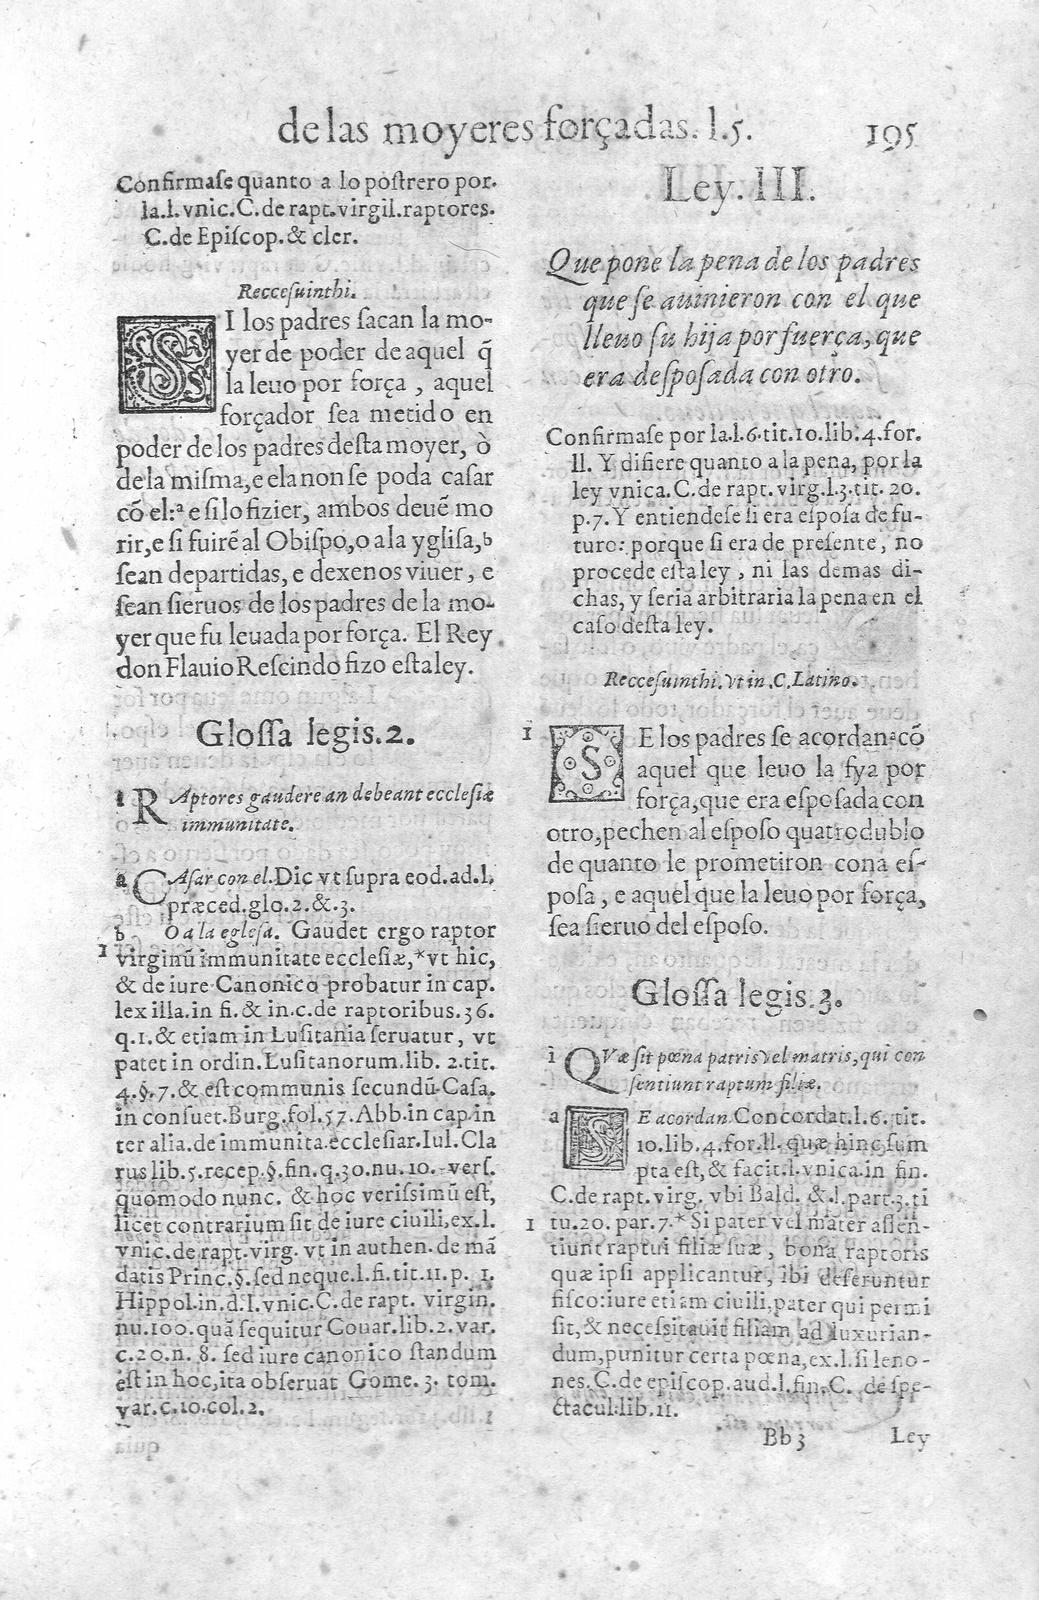 de las moyeres forçadas. l.5. 195
Confirmase quanto a lo postrero por.
la.l.vnic.C.de rapt.virgil.raptores.
C.de Episcop.& cler.
Reccesuinthi.
SI los padres sacan la mo-
yer de poder de aquel q̃
la leuo por força , aquel
forçador sea metido en
poder de los padres desta moyer, ò
de la misma, e ela non se poda casar
cõ el:ª e si lo fizier, ambos deuẽ mo
rir, e si fuirẽ al Obispo, o a la yglisa,b
sean departidas, e dexenos viuer, e
sean sieruos de los padres de la mo-
yer que fu leuada por força. El Rey
don Flauio Rescindo fizo esta ley.
Glossa legis.2.
1 RAptores gaudere an debeant ecclesiæ
immunitate.
a CAsar con el. Dic vt supra eod.ad.l.
præced.glo.2.&.3.
b O a la eglesa. Gaudet ergo raptor
1 virginũ immunitate ecclesiæ,*vt hic,
& de iure Canonico probatur in cap.
lex illa.in fi.& in.c.de raptoribus.36.
q.1.& etiam in Lusitania seruatur, vt
patet in ordin.Lusitanorum.lib. 2.tit.
4.§.7.& est communis secundũ Casa.
in consuet.Burg.fol.57.Abb.in cap.in
ter alia.de immunita.ecclesiar.Iul.Cla
rus lib.5.recep.§.fin.q.30.nu.10. vers.
quomodo nunc. & hoc verissimũ est,
licet contrarium sit de iure ciuili,ex.l.
vnic.de rapt.virg. vt in authen.de mã
datis Princ.§.sed neque.l.fi.tit.11.p. 1.
Hippol.in.d.l.vnic.C.de rapt. virgin.
nu.100.quã sequitur Couar.lib.2.var.
c.20.n. 8. sed iure canonico standum
est in hoc,ita obseruat Gome. 3. tom.
var.c.10.col.2.
Ley. III.
Que pone la pena de los padres
que se auinieron con el que
lleuo su hija por fuerça, que
era desposada con otro.
Confirmase por la.l.6.tit.10.lib.4.for.
ll. Y difiere quanto a la pena, por la
ley vnica.C.de rapt. virg.l.3.tit. 20.
p.7. Y entiendese si era esposa de fu-
turo: porque si era de presente, no
procede esta ley , ni las demas di-
chas, y seria arbitraria la pena en el
caso desta ley.
Reccesuinthi. vt in .C.Latino.
1 SE los padres se acordanªcõ
aquel que leuo la fya por
força, que era esposada con
otro, pechen al esposo quatro dublo
de quanto le prometiron cona es-
posa , e aquel que la leuo por força,
sea sieruo del esposo.
Glossa legis.3.
1 QVæ sit pœna patris vel matris, qui con
sentiunt raptum filiæ.
a SE acordan. Concordat.l.6. tit.
10.lib.4.for.ll. quæ hinc sum
pta est,& facit.l.vnica.in fin.
C.de rapt.virg. vbi Bald. &.l.part.3.ti
1 tu.20. par.7.* Si pater vel mater assen-
tiunt raptui filiæ suæ , bona raptoris
quæ ipsi applicantur, ibi deferuntur
fisco:iure etiam ciuili,pater qui permi
sit,& necessitauit filiam ad luxurian-
dum,punitur certa pœna,ex.l.si leno-
nes.C.de episcop.aud.l.fin.C. de spe-
ctacul.lib.11.
Bb3 Ley